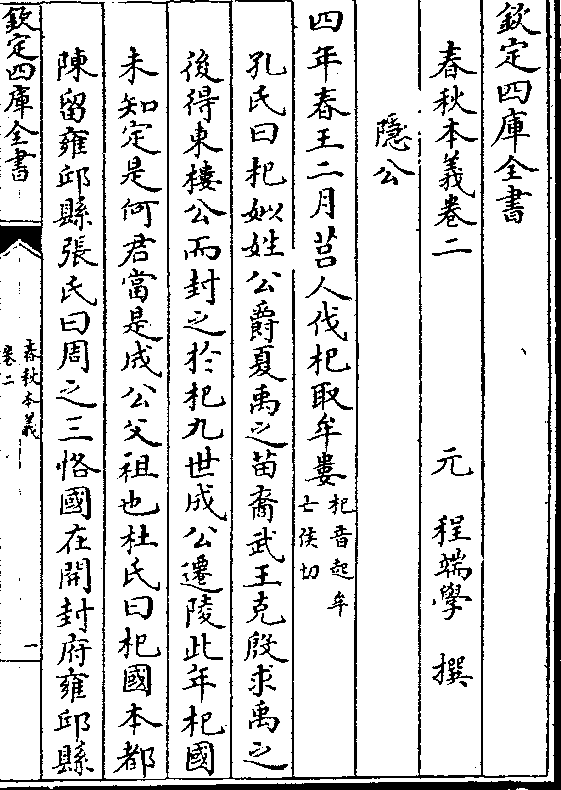 欽定四庫全書
春秋本義卷二
元 程端學 撰
隱公
四年春王二月莒人伐杞取牟婁
杞音起牟
亡侯切
孔氏曰杞姒姓公爵夏禹之苗裔武王克殷求禹之
後得東樓公而封之於杞九世成公遷陵此年杞國
未知定是何君當是成公父祖也杜氏曰杞國本都
陳留雍邱縣張氏曰周之三恪國在開封府雍邱縣
欽定四庫全書
春秋本義
卷二
一